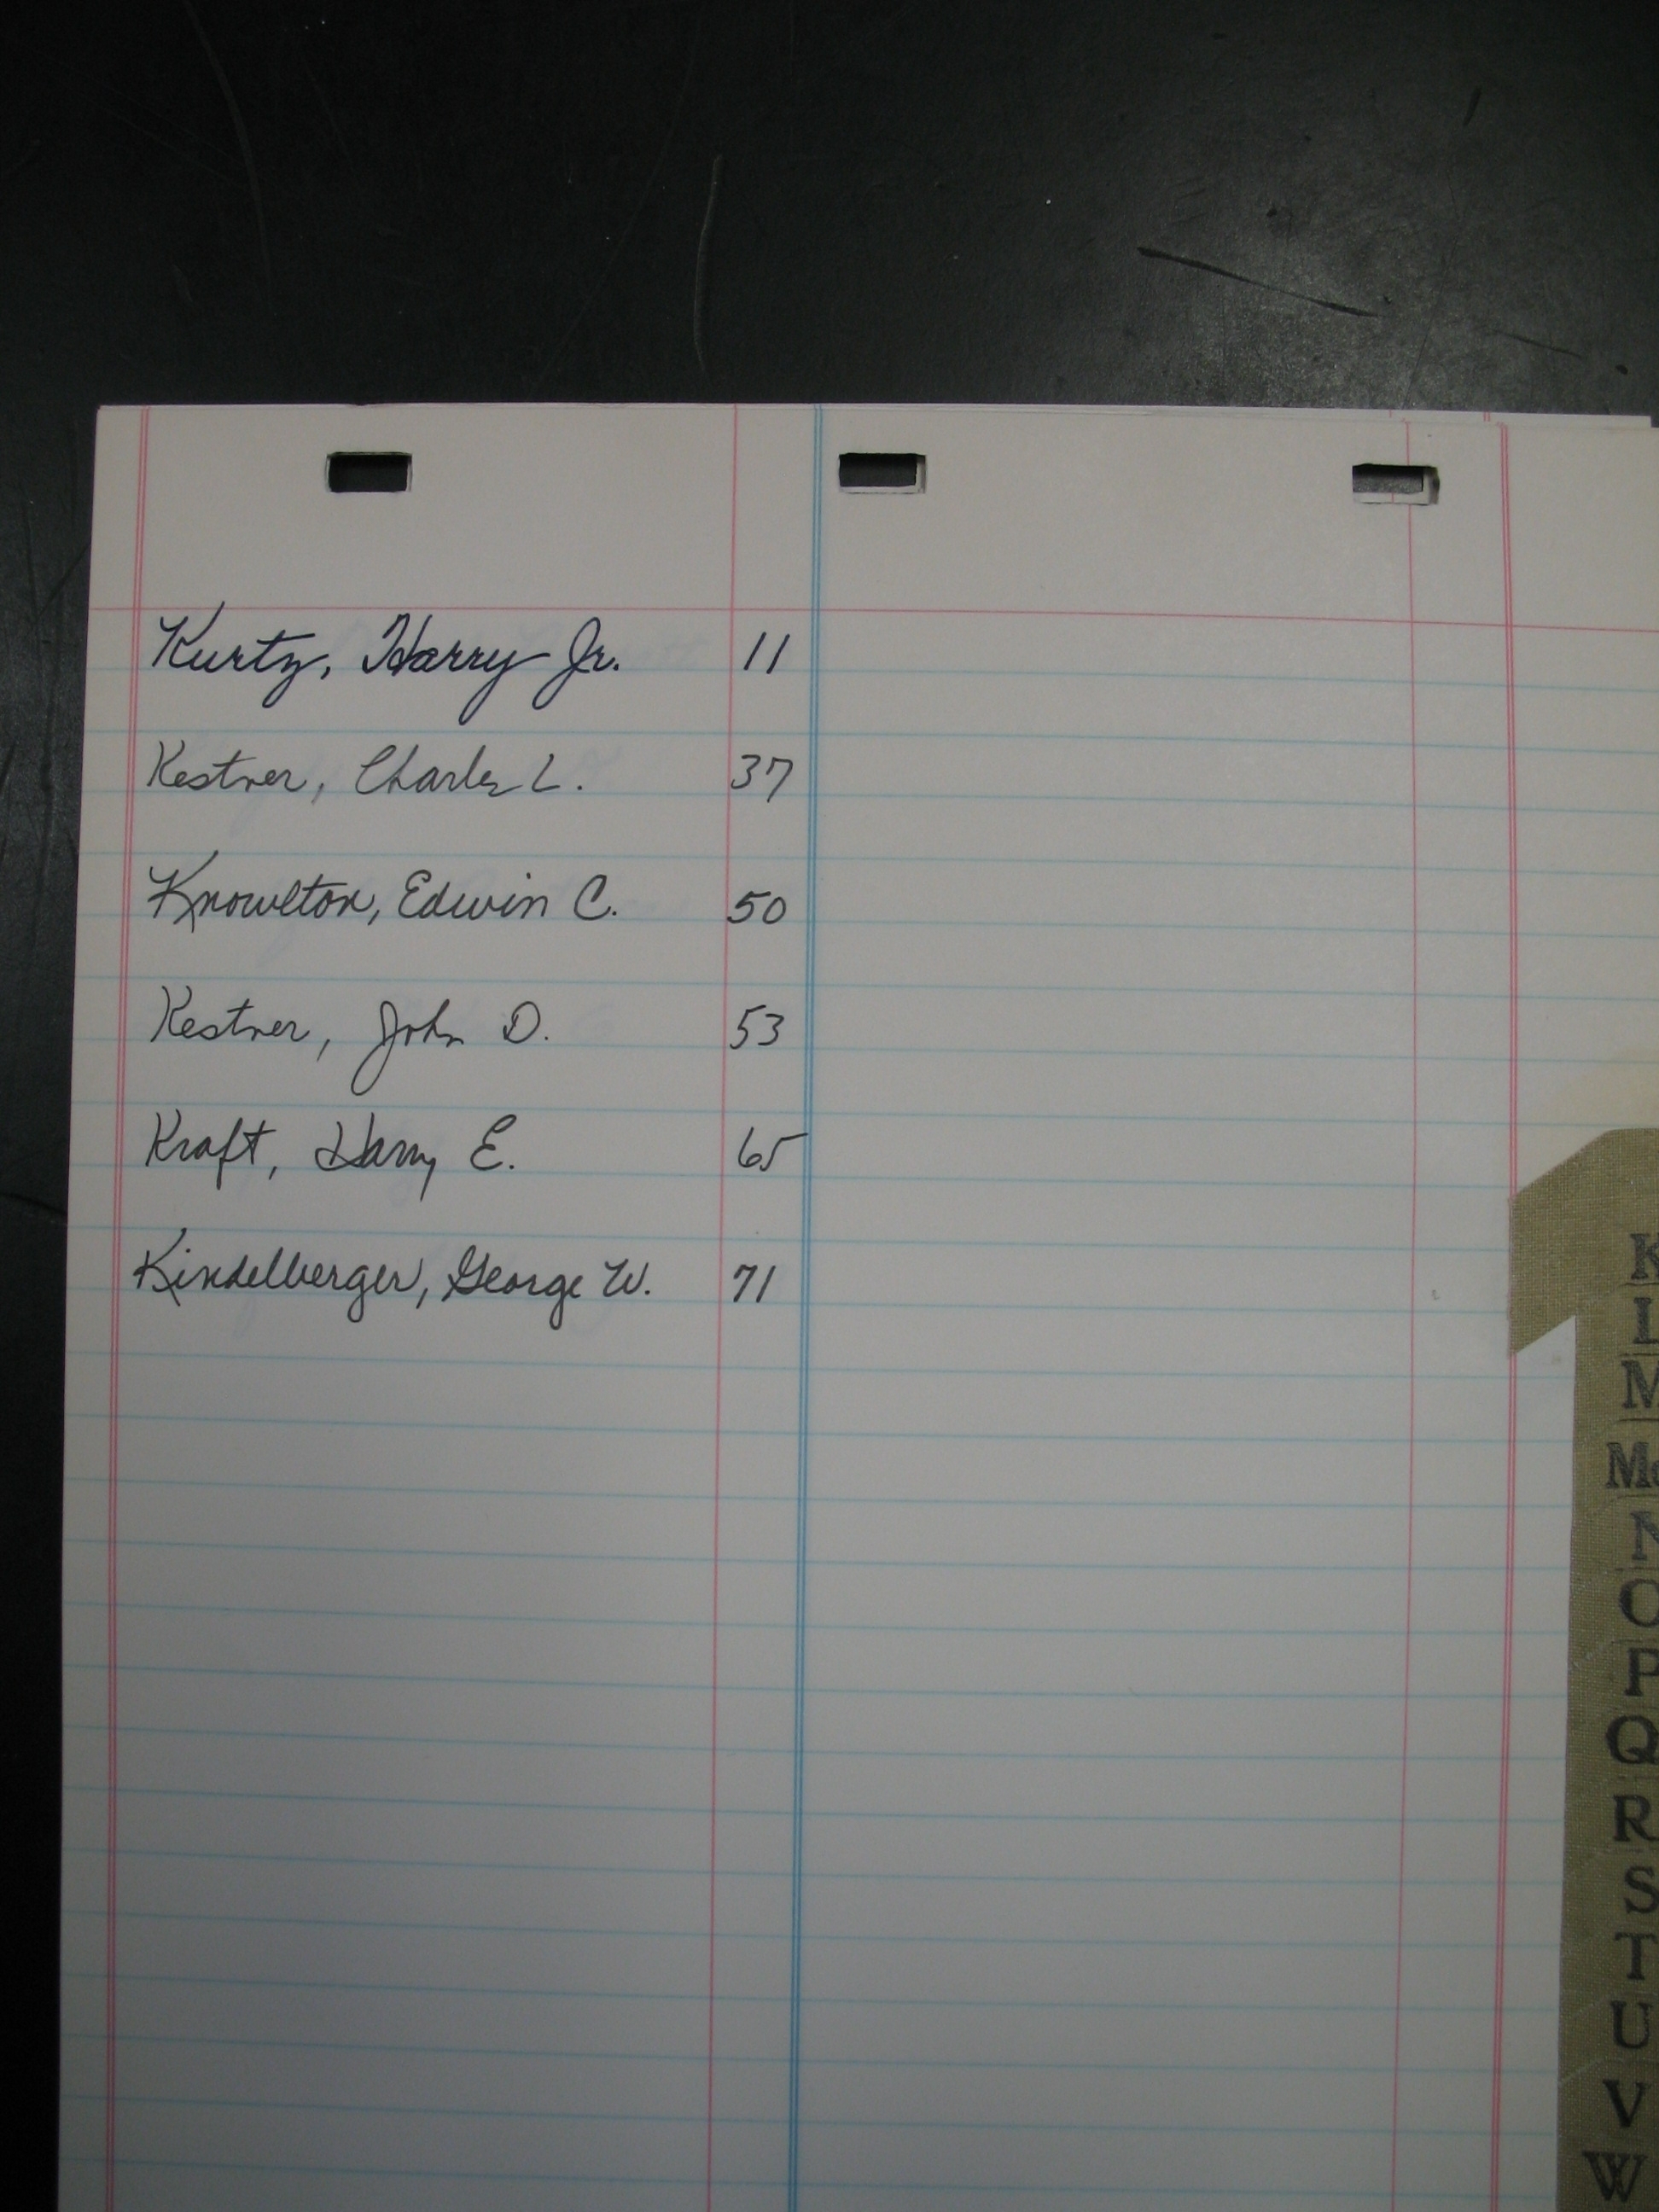 Kurtz, Harry Jr. 11
Kestner, Charles L. 37
Knowlton, Edwin C. 50
Kestner, John D. 53
Kraft, Harry E. 65
Kindelberger, George W. 71
K
L
M
Mc
N
O
P
Q
R
S
T
U
V
W